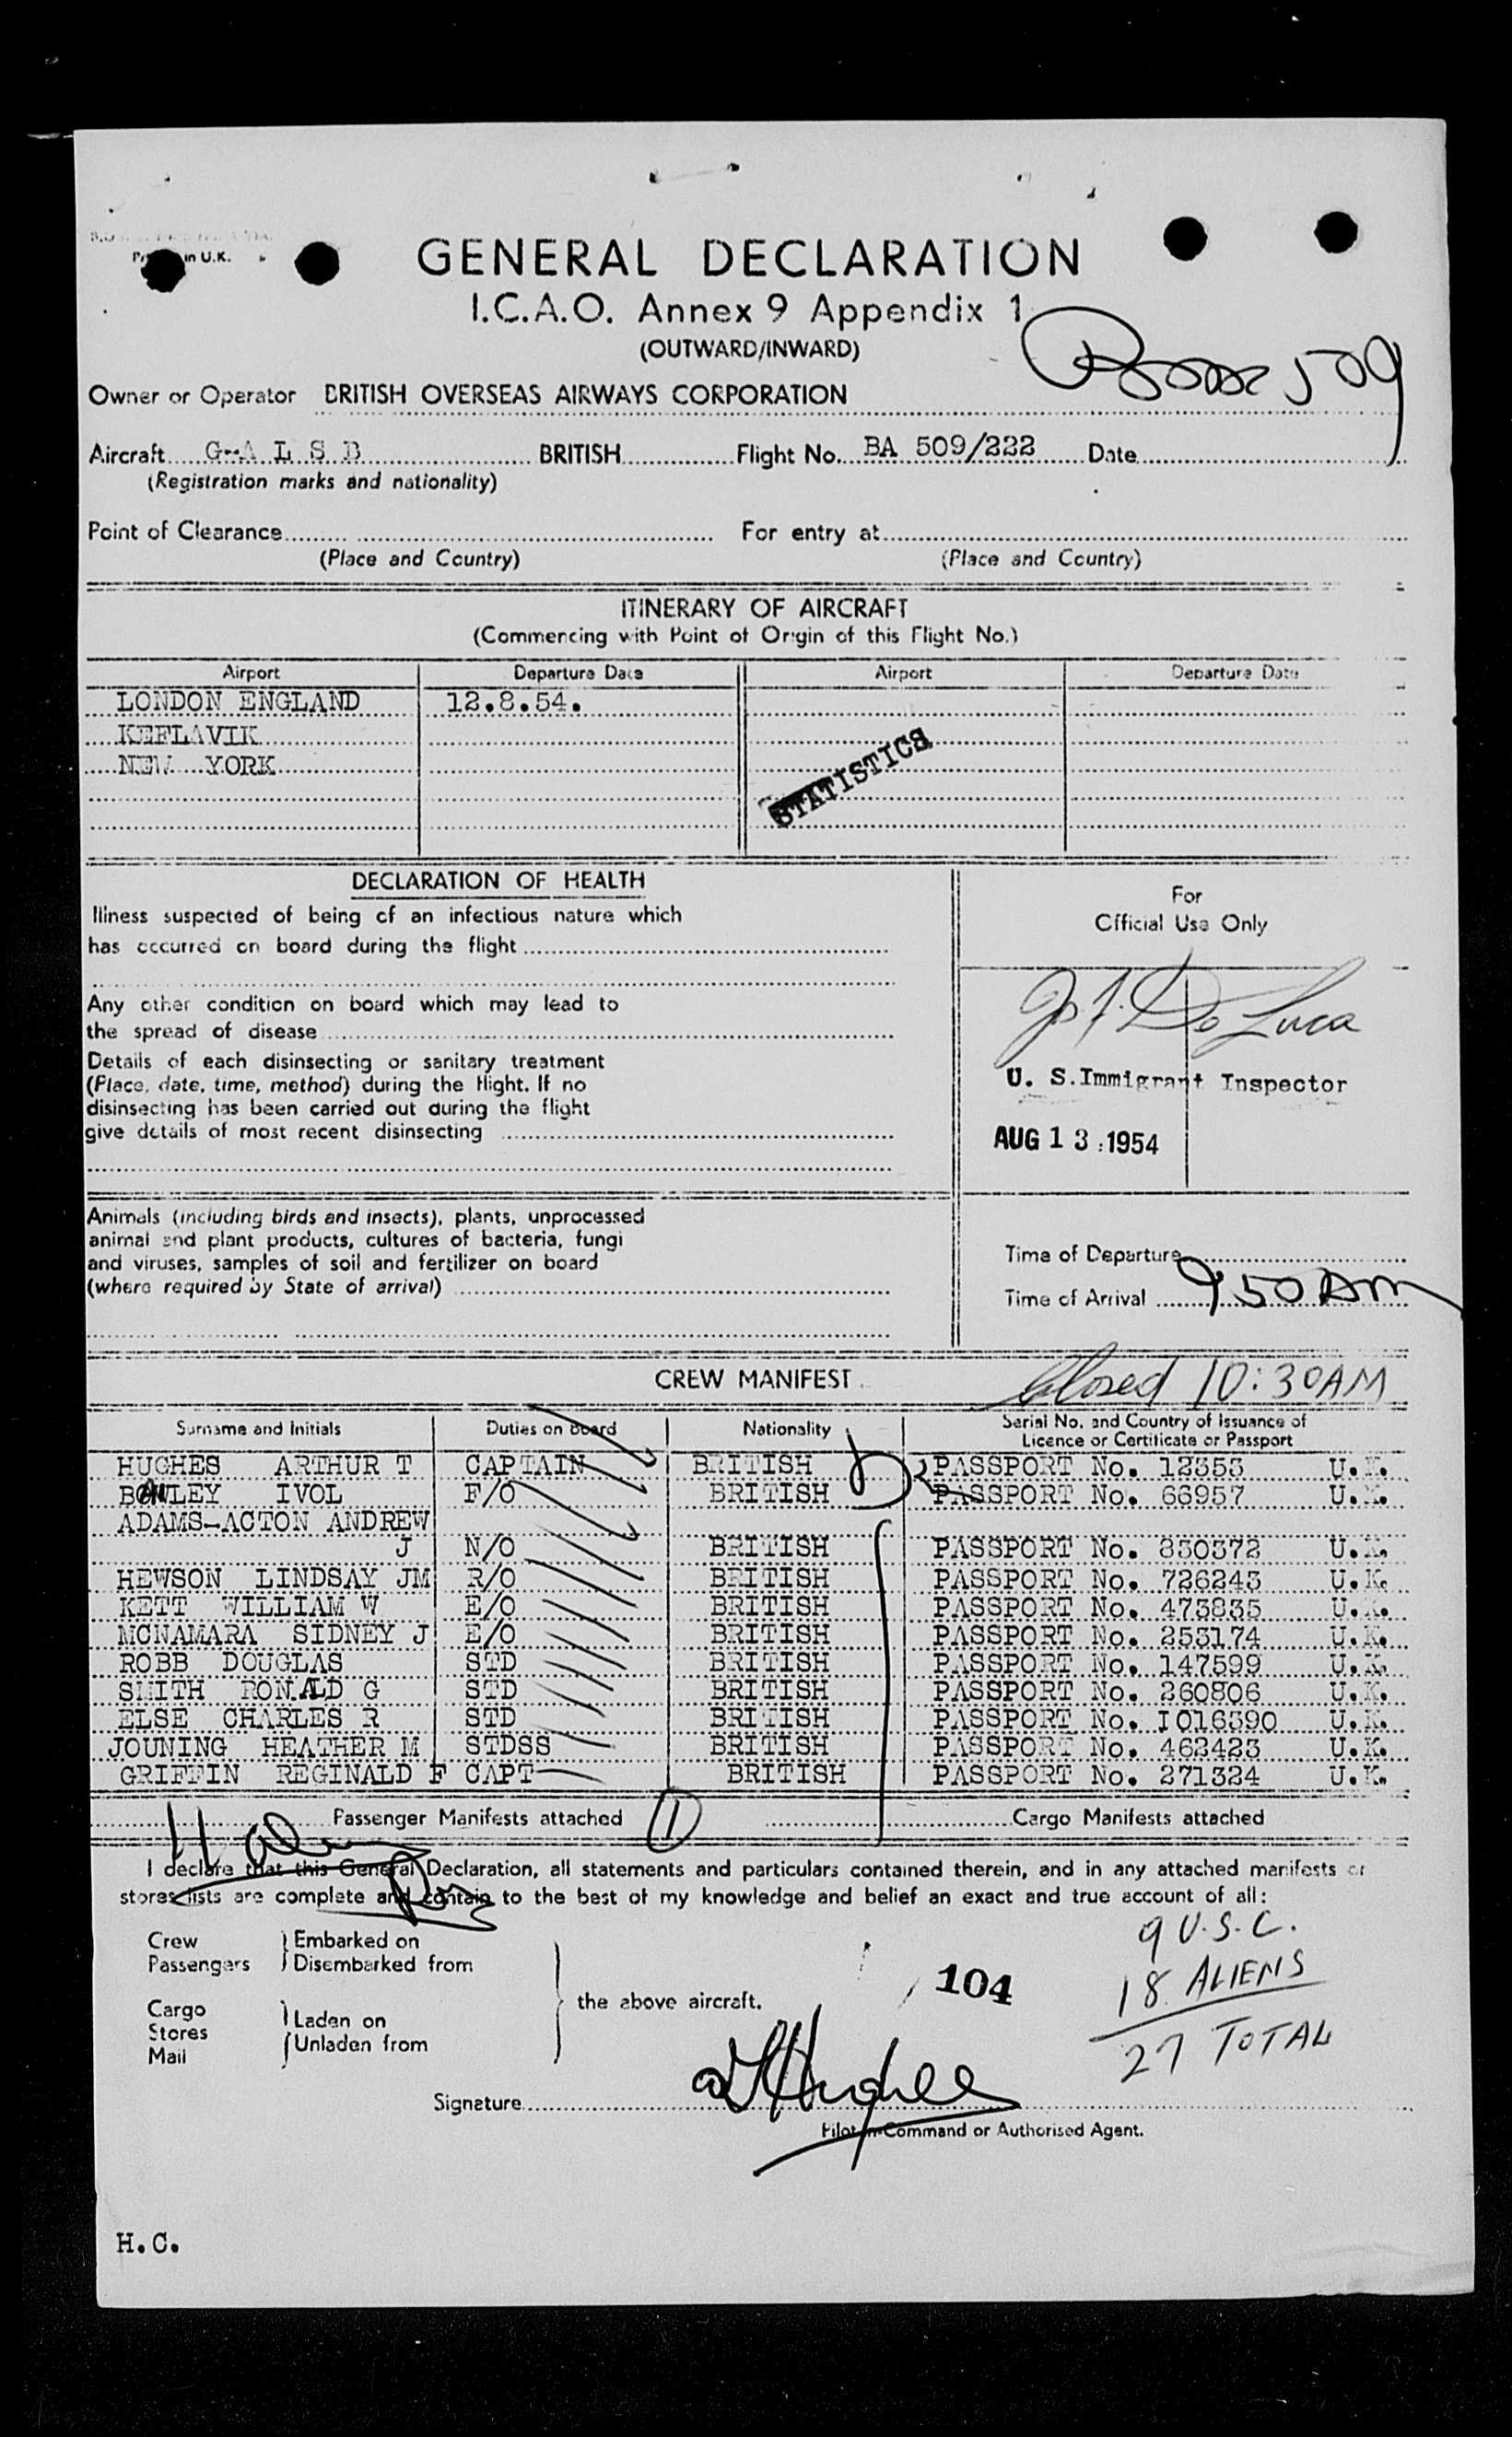 in U.K.
GENERAL DECLARATION
I.C.A.O. Annex 9 Appendix 1
(OUTWARD/INWARD)
Boac 509
Owner or Operator BRITISH OVERSEAS AIRWAYS CORPORATION
Aircraft G-A L S B BRITISH Flight No. BA 509/222 Date
(Registration marks and nationality)
Point of Clearance For entry at
(Place and Country) (Place and Country)
ITINERARY OF AIRCRAFT
(Commencing with Point of Origin of this Flight No.)
Airport Departure Date Airport Departure Date
LONDON ENGLAND 12.8.54.
KEFLAVIK
NEW YORK
STATISTICS
DECLARATION OF HEALTH
Illness suspected of being of an infectious nature which
has occurred on board during the flight
Any other condition on board which may lead to
the spread of disease
Details of each disinsecting or sanitary treatment
(Place, date, time, method) during the flight. If no
disinsecting has been carried out during the flight
give details of most recent disinsecting
For
Official Use Only
Jos F. De Luca
U. S. Immigrant Inspector
AUG 13 1954
Animals (including birds and insects), plants, unprocessed
animal and plant products, cultures of bacteria, fungi
and viruses, samples of soil and fertilizer on board
(where required by State of arrival)
Time of Departure
Time of Arrival 950 AM
CREW MANIFEST
Closed 10:30AM
Surname and Initials Duties on Board Nationality Serial No. and Country of Issuance of
Licence or Certificate or Passport
HUGHES ARTHUR T CAPTAIN BRITISH PASSPORT No. 12353 U.K.
BAWLEY IVOL F/O BRITISH PASSPORT No. 66957 U.K.
ADAMS-ACTON ANDREW
J N/O BRITISH PASSPORT No. 830372 U.K.
HEWSON LINDSAY JM R/O BRITISH PASSPORT No. 726243 U.K.
KETT WILLIAM W E/O BRITISH PASSPORT No. 473835 U.K.
MCNAMARA SIDNEY J E/O BRITISH PASSPORT No. 253174 U.K.
ROBB DOUGLAS STD BRITISH PASSPORT No. 147599 U.K.
SMITH RONALD G STD BRITISH PASSPORT No. 260806 U.K.
ELSE CHARLES R STD BRITISH PASSPORT No. I016390 U.K.
JOUNING HEATHER M STDSS BRITISH PASSPORT No. 462423 U.K.
GRIFFIN REGINALD F CAPT BRITISH PASSPORT No. 271324 U.K.
Passenger Manifests attached 1 Cargo Manifests attached
I declare that this General Declaration, all statements and particulars contained therein, and in any attached manifests or
stores lists are complete and contain to the best of my knowledge and belief an exact and true account of all:
Crew Embarked on
Passengers Disembarked from
Cargo
Stores Laden on
Mail Unladen from
the above aircraft.
104
9 U.S.C.
18 ALIENS
27 TOTAL
Signature ATHughes
Pilot-in-Command or Authorised Agent.
H.C.